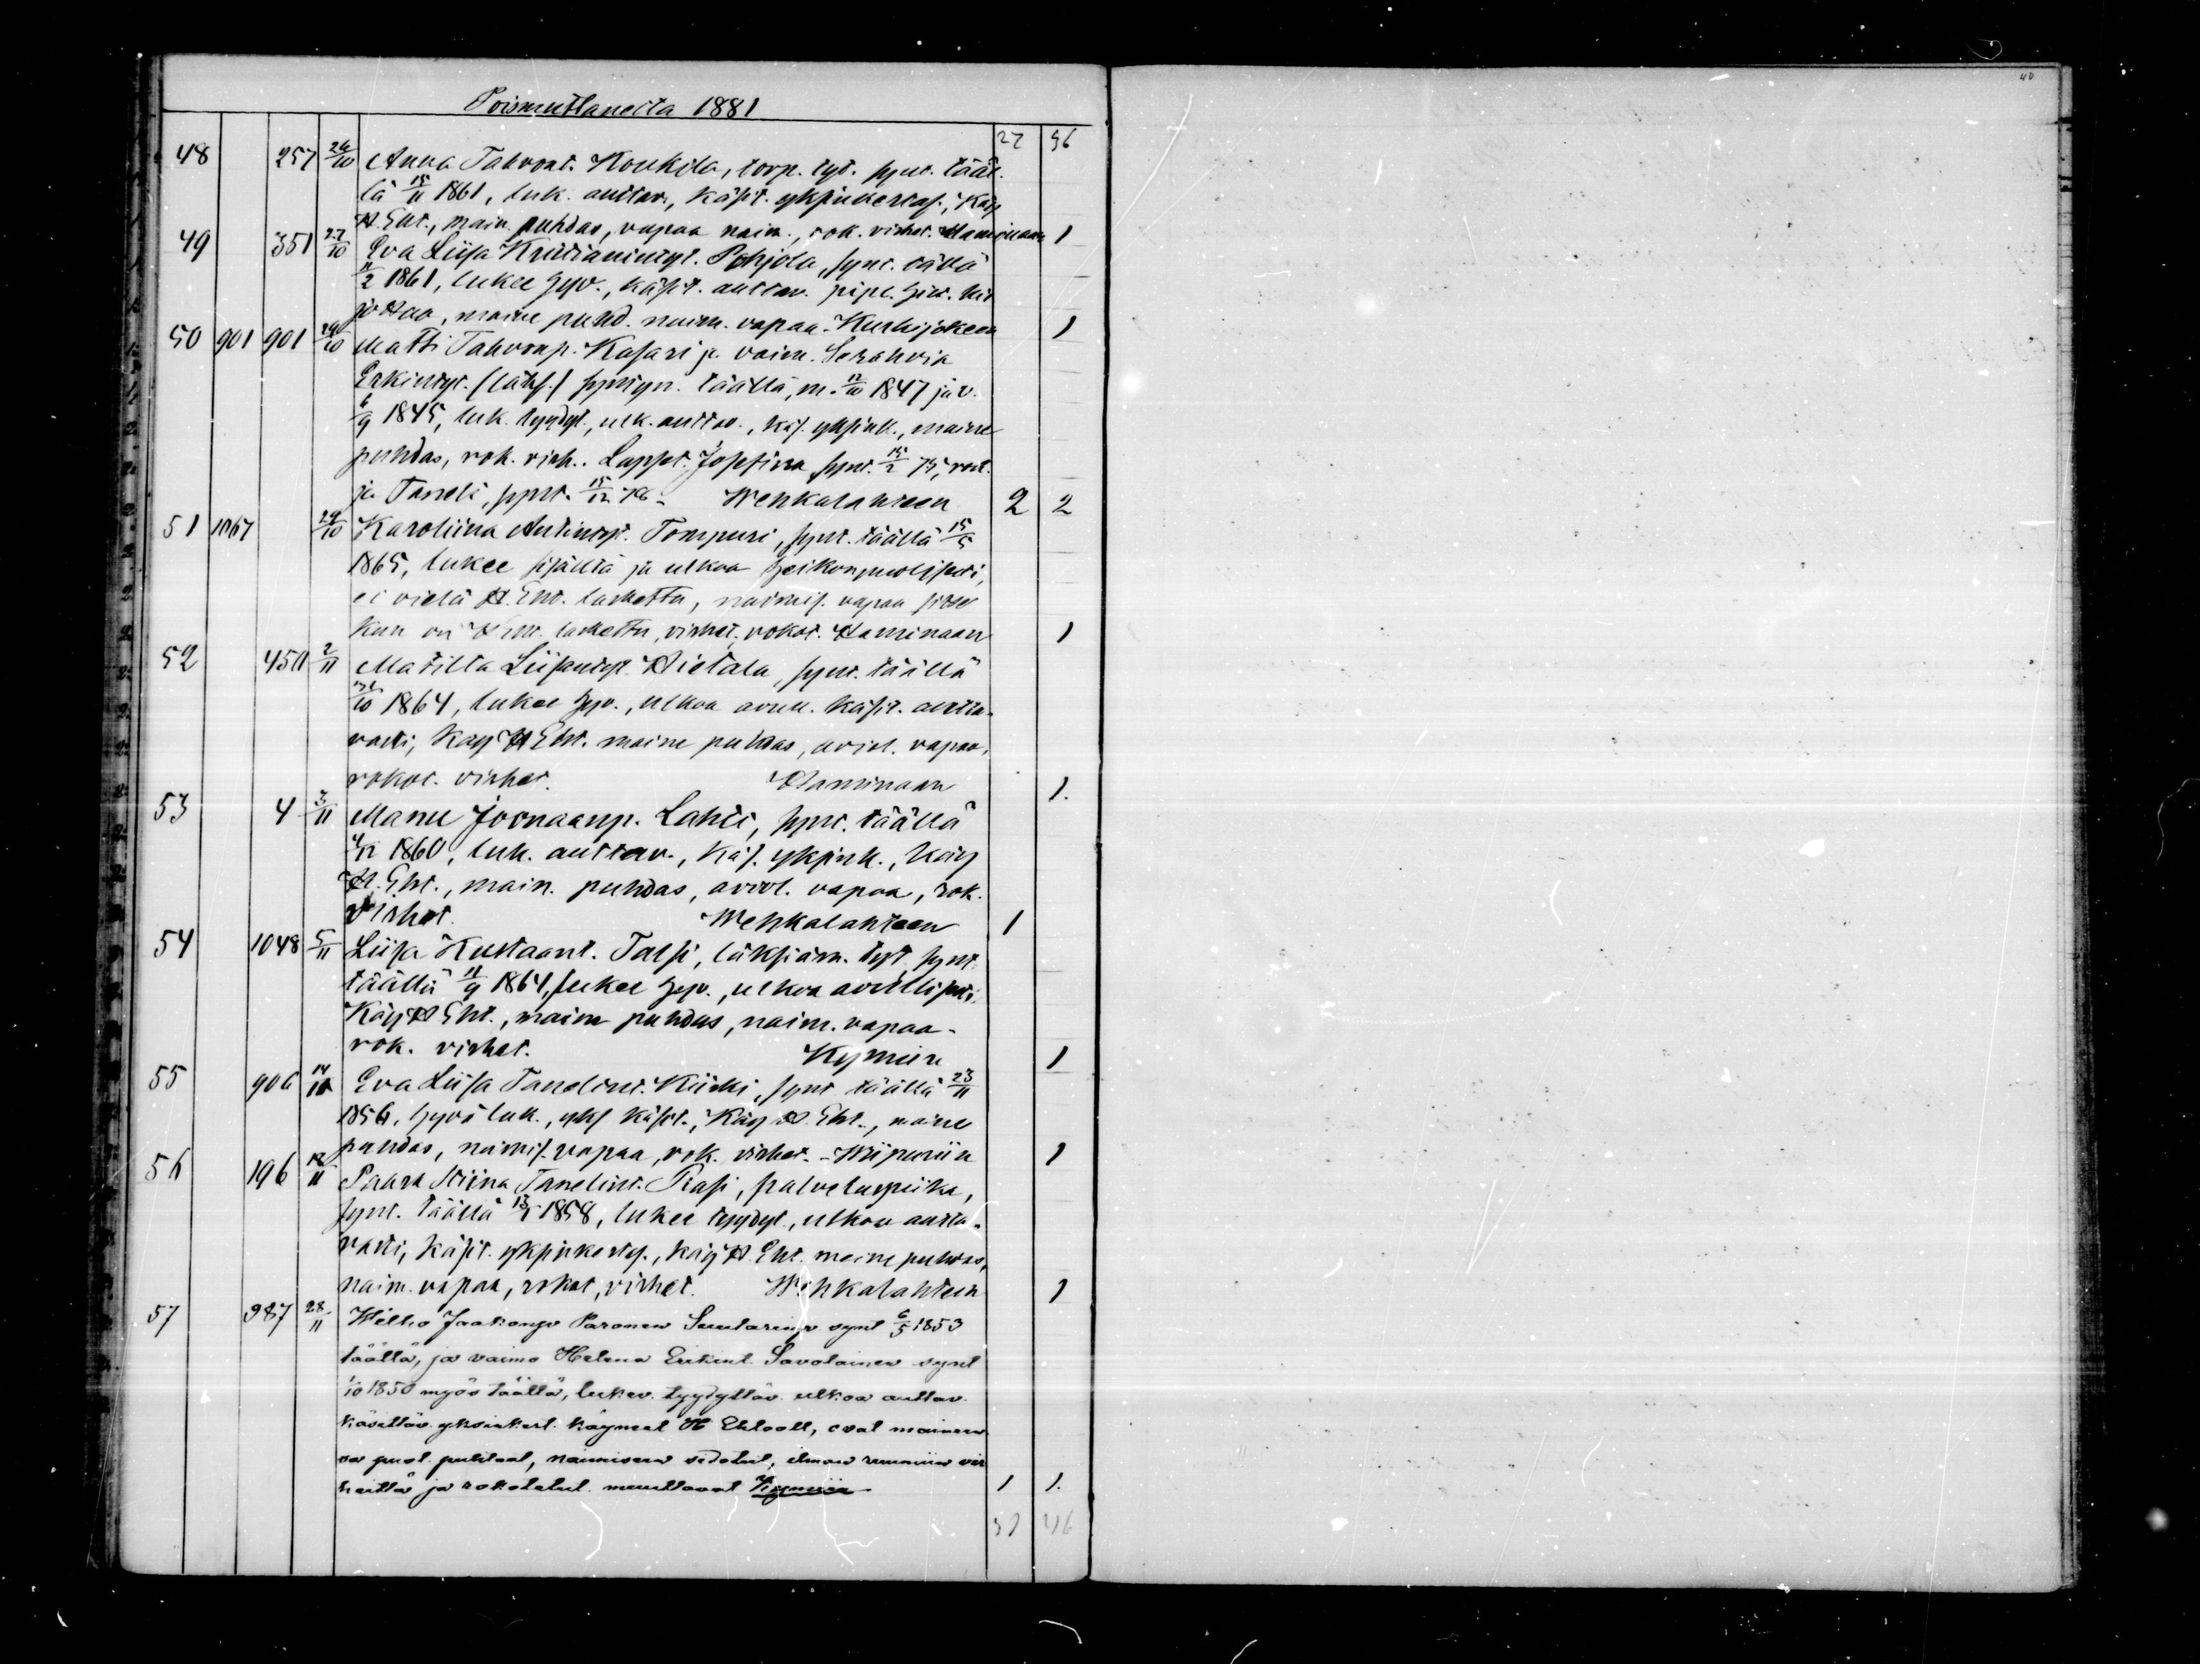 40
Poismuttaneita 1881
27 36
48 257 26/10 Anna Tahvont. Koukila, torp. tyt. synt. tääl-
lä 15/11 1861, luk. auttav., käsit. yksinkertas., käy
H. Eht., main. puhdas, vapaa naim., rok. virhet. Haminaan 1
49 351 27/10 Eva Liisa Kristianintyt. Pohjola, synt. tällä
11/2 1861, lukee hyv., käsit. auttav. pipl. hist.
maine puhd. naim. vapaa. Kurkijokeen 1
50 901 901 29/10 Matti Tahvonp. Kasari ja vaim. Serahvia
Erkintyt. synt. täällä, m. 12/10 1847 ja v.
6/9 1845, luk. tyydyt., ulk. auttav., käs. yksink., maine
puhdas, rok. virh. Lapset: Josefina synt. 15/2 75, rok.
ja Taneli, synt. 15/12 78. Wehkalahteen 2 2
51 1067 29/10 Karoliina Antintyt. Tompuri, synt. täällä 15/5
1865, lukee sisältä ja ulkoa heikonpuolisesti,
ei vielä H. Eht. laskettu, naimis. vapaa sitte
kun on H. Eht. laskettu, virhet., rokot. Haminaan 1
52 450 2/11 Matilta Liisantyt. Hietala, synt. täällä
/10 1864, lukee hyv., ulkoa avull. käsit. autta-
vasti, käy H. Eht. maine puhdas, aviol. vapaa,
rokot. virhet. Haminaan 1.
53 4 3/11 Manu Joonaanp. Lahti, synt. täällä
4/12 1860, luk. auttav., käs. yksink., käy
H. Eht., main. puhdas, aviol. vapaa, rok.
virhet. Wehkalahteen 1
54 1048 5/11 Liisa Kustaant. Talsi, tyt. synt.
täällä 11/9 1864, lukee hyv., ulkoa avullisesti,
Käy H. Eht., maine puhdas, naim. vapaa.
rok. virhet. Kymiin 1
55 906 14/11 Eva Liisa Tanelint. Kiiski, synt täällä 23/11
1856, hyvä luk., yks käsit., Käy H. Eht., maine
puhdas, naimis. vapaa, rok. virhet. - Wiipuriin 1
56 196 18/11 Paava Stiina Tanelint. Rasi, palveluspiika,
synt. täällä 13/5 1858, lukee tyydyt., ulkoa autta-
vasti, käsit. yksinkertas., käy H. Eht. maine puhdas,
naim. vapaa, rokot., virhet. Wehkalahteen 1
57 987 28/11 Wilho Jaakonp Paronen Suutarinp synt 6/5 1853
täällä, ja vaimo Helena Erikint. Savolainen synt
1/10 1850 myös täällä, lukev. tyydyttäv. ulkoa auttav.
käsittäv. yksinkert. käyneet H Ehtooll, ovat maineen
sa puol. puhtaat, naimiseen sidotut, ilman ruumiin vir
heittä ja rokotetut. muuttavat Kymiin 1 1.
36